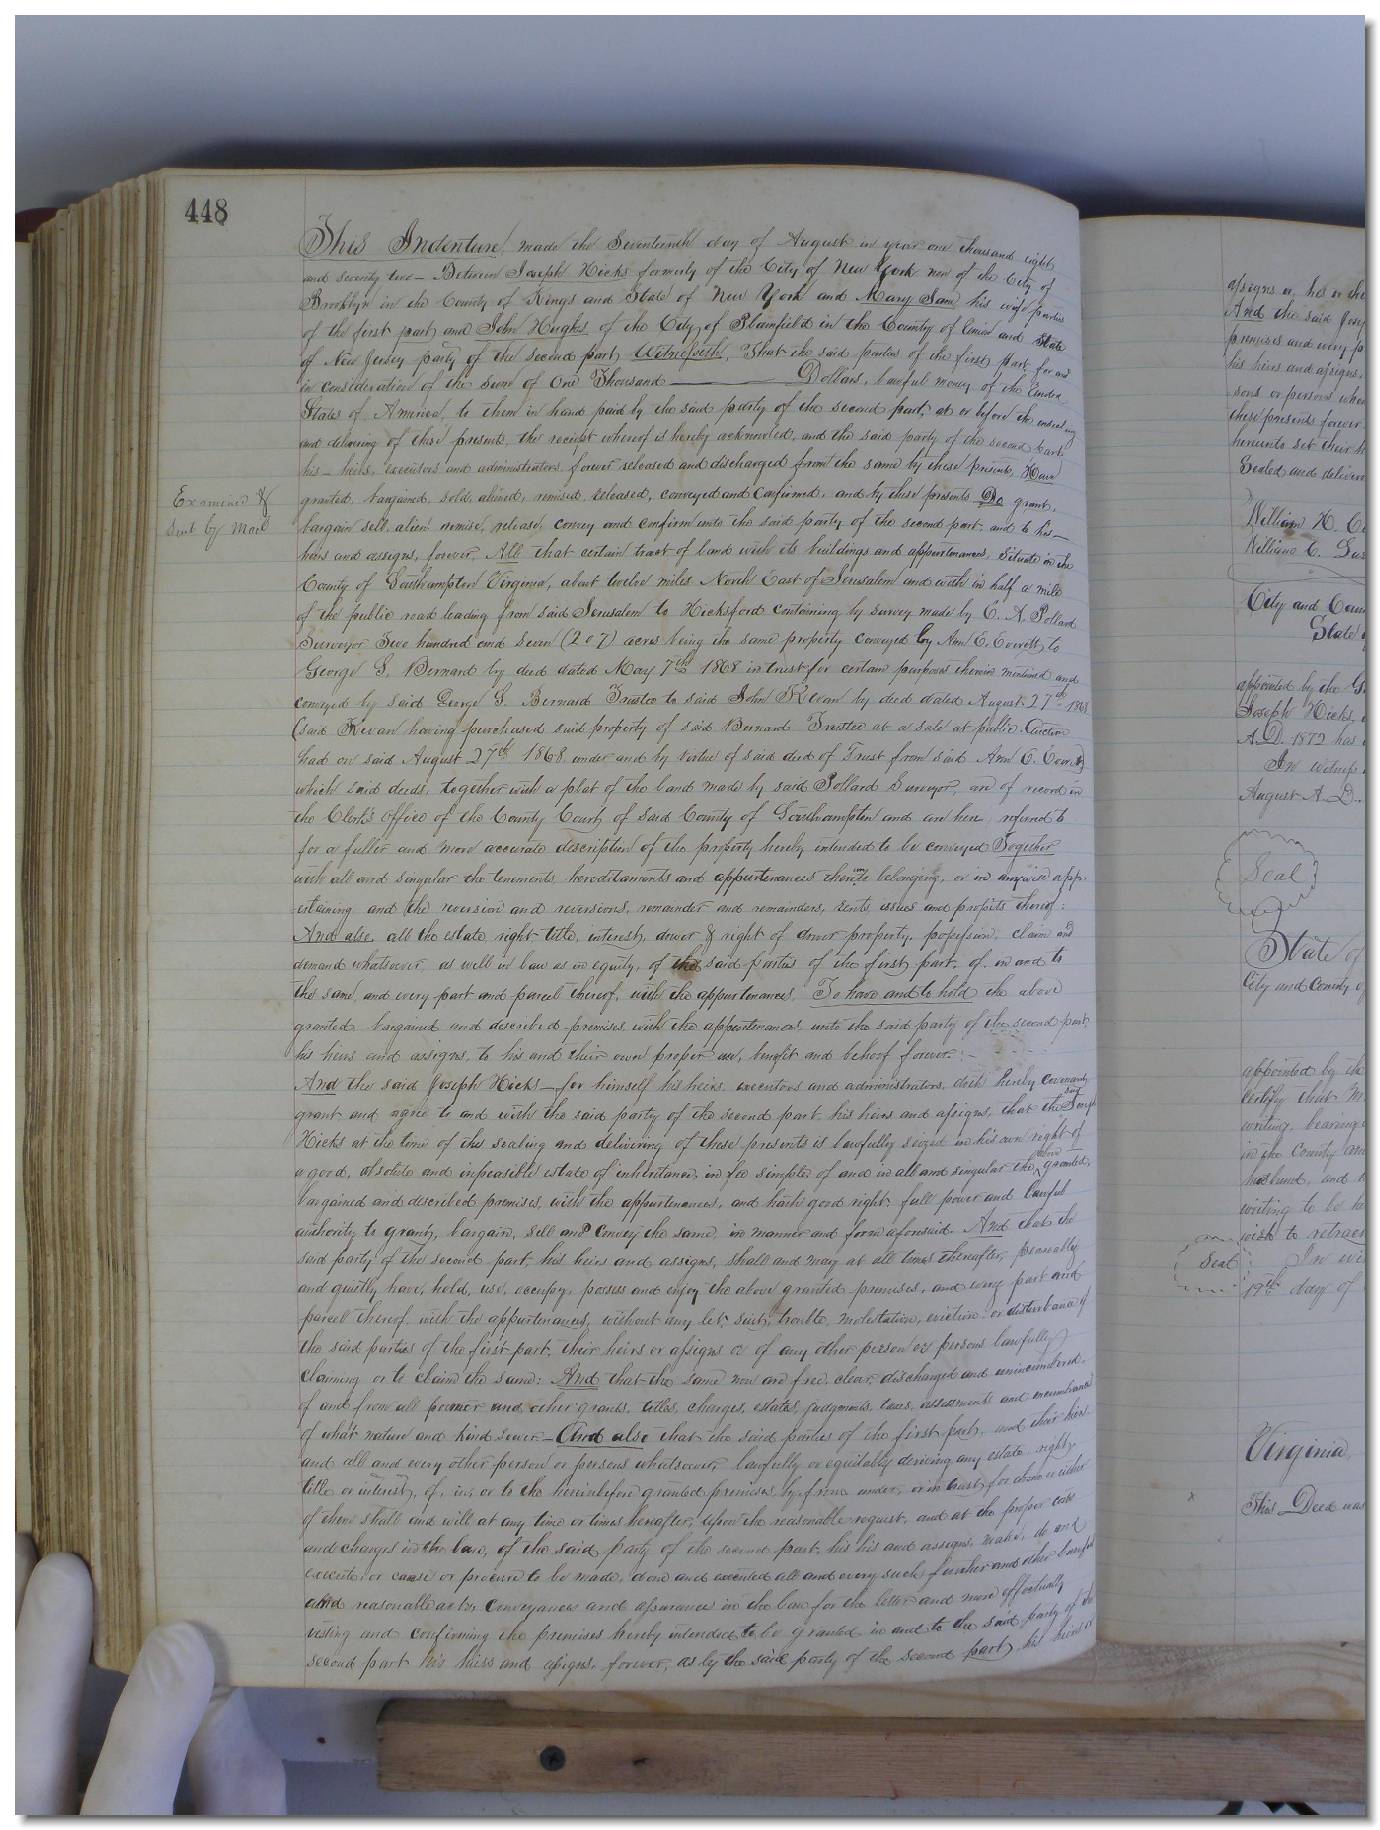 448
This Indenture, made the Seventeenth day of August in year one thousand eight
and seventy two – Between Joseph Hicks formerly of the City of New York now of the City of
Brooklyn in the County of Kings and State of New York and Mary Jane his wife parties
of the first part and John Hughs of the City of Plainfield in the County of Union and State
of New Jersey party of the second part, Witnesseth, That the said parties of the first part, for and
in consideration of the sum of One Thousand ——— Dollars, lawful money of the United
States of America, to them in hand paid by the said party of the second part, at or before the ensealing
and delivering of these presents, the receipt whereof is hereby acknowled, and the said party of the second part
his – heirs, executors and administrators forever released and discharged from the same by these presents, Have
Examined &
Sent by Mail
granted, bargained, sold, aliened, remised, released, conveyed and confirmed, and by these presents Do grant,
bargain sell, alien remise, release, convey and confirm unto the said party of the second part, and to his –
heirs and assigns, forever, All that certain tract of land with its buildings and appurtenances, Situate in the
County of Southampton Virginia, about twelve miles North East of Jerusalem and with in half a mile
of the public road leading from said Jerusalem to Hicksford containing by survey made by C. A. Pollard
Surveyor Two hundred and seven (207) acres being the same property conveyed by Ann E. Everett to
George S. Bernard by deed dated May 7th 1868 in trust for certain purposes therein mentioned and
conveyed by said George S. Bernard Trustee to said John Kevan by deed dated August 27th 1868
(said Kevan having purchased said property of said Bernard Trustee at a sale at public Auction
had on said August 27th 1868 under and by virtue of said deed of Trust from said Ann E. Everett)
which said deeds, together with a plat of the land made by said Pollard Surveyor, are of record in
the Clerk's Office of the County Court of said County of Southampton and are here referred to
for a fuller and more accurate description of the property hereby intended to be conveyed Together
with all and singular the tenements, hereditaments and appurtenances thereunto belonging, or in anywise app-
ertaining and the reversion and reversions, remainder and remainders, rents, issues and profits thereof:
And also, all the estate, right title, interest, dower & right of dower property, possession, claim and
demand whatsoever, as well in law as in equity, of the said parties of the first part, of, in and to
the same, and every part and parcel thereof, with the appurtenances, To have and to hold the above
granted, bargained and described premises, with the appurtenances, unto the said party of the second part,
his heirs and assigns, to his and their own proper use, benefit and behoof forever. –
And the said Joseph Hicks – for himself his heirs, executors and administrators, doth hereby covenant,
grant and agree to and with the said party of the second part, his heirs and assigns, that the said Joseph
Hicks at the time of the sealing and delivering of these presents is lawfully seized in his own right of
a good, absolute and inpeasible estate of inheritance, in fee simple, of and in all and singular the above granted,
bargained and described premises, with the appurtenances, and hath good right, full power and lawful
authority to grant, bargain, sell and convey the same, in manner and form aforesaid. And that the
said party of the second part, his heirs and assigns, shall and may at all times thereafter, peaceably
and quietly have, hold, use, occupy, possess and enjoy the above granted premises, and every part and
parcel thereof, with the appurtenances, without any let, suit, trouble, molestation, eviction, or disturbance of
the said parties of the first part, their heirs or assigns or of any other person or persons lawfully
claiming or to claim the same: And that the same now are free, clear, discharged and unincumbered,
of and from all former and other grants, titles, charges, estates, judgments, taxes, assessments and incumbrances
of what nature and kind soever – And also that the said parties of the first part, and their heirs
and all and every other person or persons whatsoever, lawfully or equitably deriving any estate, right,
title or interest, of, in, or to the hereinbefore granted premises, by, from, under, or in trust, for them or either
of them shall and will at any time or times hereafter, upon the reasonable request, and at the proper cost
and charges in the law, of the said party of the second part, his his and assigns, make, do and
execute, or cause or procure to be made, done and executed all and every such further and other lawful
and reasonable acts, conveyances and assurances in the law for the better and more effectually
vesting and confirming the premises hereby intended to be granted in and to the said party of the
second part his heirs and assigns, forever, as by the said party of the second part, his heirs or
assigns or, his or the
And the said Josep
premises and every p
his heirs and assigns,
sons or persons whom
these presents forever
hereunto set their h
Sealed and deliver
William H. C
William C.
City and Coun
State
appointed by the G
Joseph Hicks,
A.D. 1872 has
In witness
August A.D.
Seal
State of
City and County of
appointed by the
Certify that M
writing, bearing
in the County an
husband, and
writing to be h
wish to retract
Seal
In wit
19th day of
Virginia,
x
This Deed was